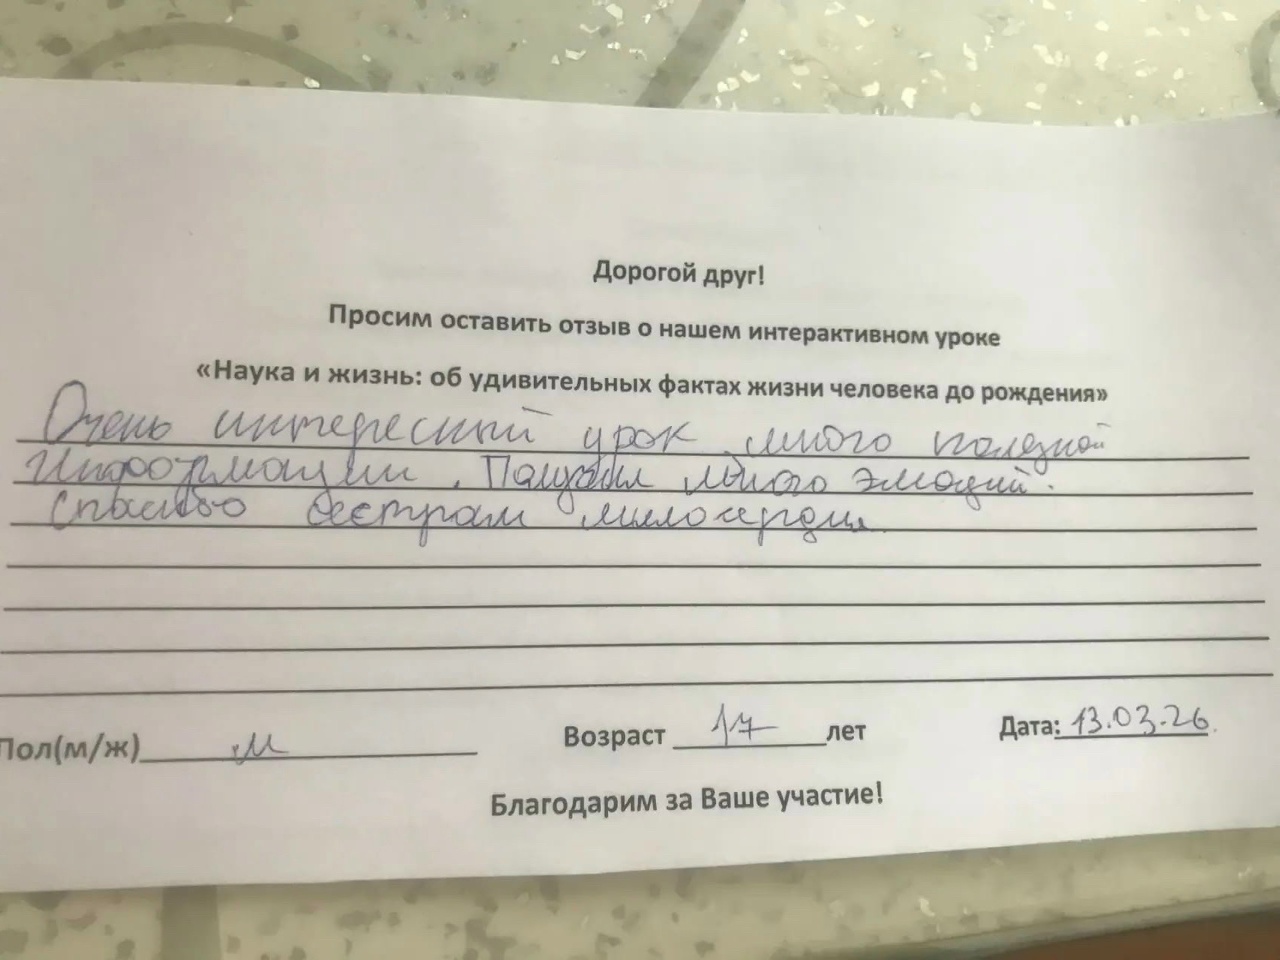 Дорогой друг!
Просим оставить отзыв о нашем интерактивном уроке
«Наука и жизнь: об удивительных фактах жизни человека до рождения»
Очень интересный урок много полезной
информации. Получил много эмоций.
Спасибо сестрам милосердия
Пол(м/ж) м Возраст 17 лет Дата: 13.03.26.
Благодарим за Ваше участие!